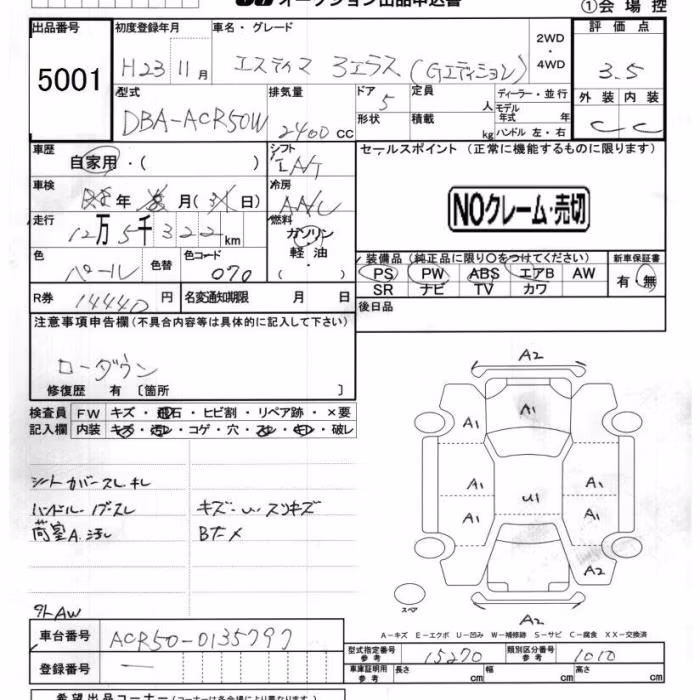 オークション出品申込書
①会場控
出品番号 初度登録年月 車名・グレード 評価点
5001 H23 11月 エスティマ 3.5
2WD・4WD
型式 排気量 ドア 定員 ディーラー・並行 外装 内装
DBA-ACR50W 2400cc 5 人 モデル年式 年 C C
形状 積載 kg ハンドル 左・右
車歴 シフト セールスポイント (正常に機能するものに限ります)
自家用・( ) IAT
車検 冷房
年 月( 日) A/C
NOクレーム・売切
走行 燃料
12万5千322km ガソリン
軽油
・( )
色 色替 色コード 装備品 (純正品に限り○をつけてください) 新車保証書
パール 070 PS PW ABS エアB AW 有・無
SR ナビ TV カワ
R券 14440円 名変通知期限 月 日 後日品
注意事項申告欄(不具合内容等は具体的に記入して下さい)
ローダウン
修復歴 有 〔箇所 〕
検査員 FW キズ・飛石・ヒビ割・リペア跡・×要
記入欄 内装 キズ・汚レ・コゲ・穴・スレ・キレ・破レ
シートカバースレ、キレ
ハンドル・ノブスレ キズ・U・スリキズ
荷室A.汚レ
外AW
A2
A1
A1
A1 A1
U1
A1 A1
A2
A2
スペア
A-キズ E-エクボ U-凹み W-補修跡 S-サビ C-腐食 XX-交換済
車台番号 ACR50-0135797
型式指定番号 参考 15270 類別区分番号 参考 1010
登録番号 —
車庫証明用 参考 長さ cm 幅 cm 高さ cm
希望出品コーナー